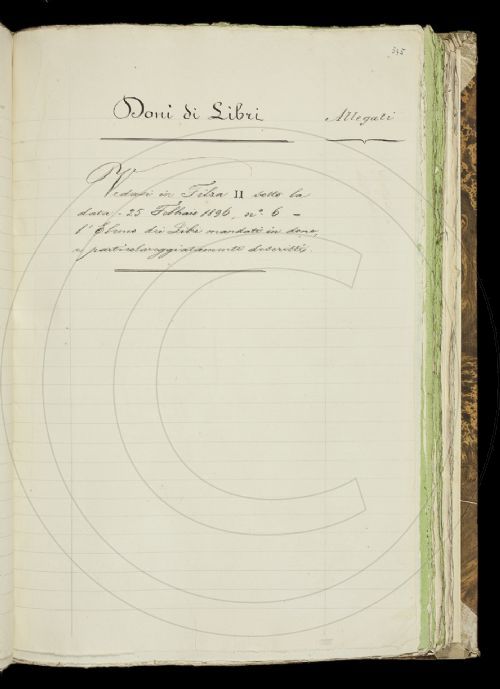 545
Doni di Libri
Allegati
Vedasi in Filza II sotto la
data 25 Febbraio 1896, n° 6 -
l'Elenco dei Libri mandati in dono,
e particolareggiatamente descritti.